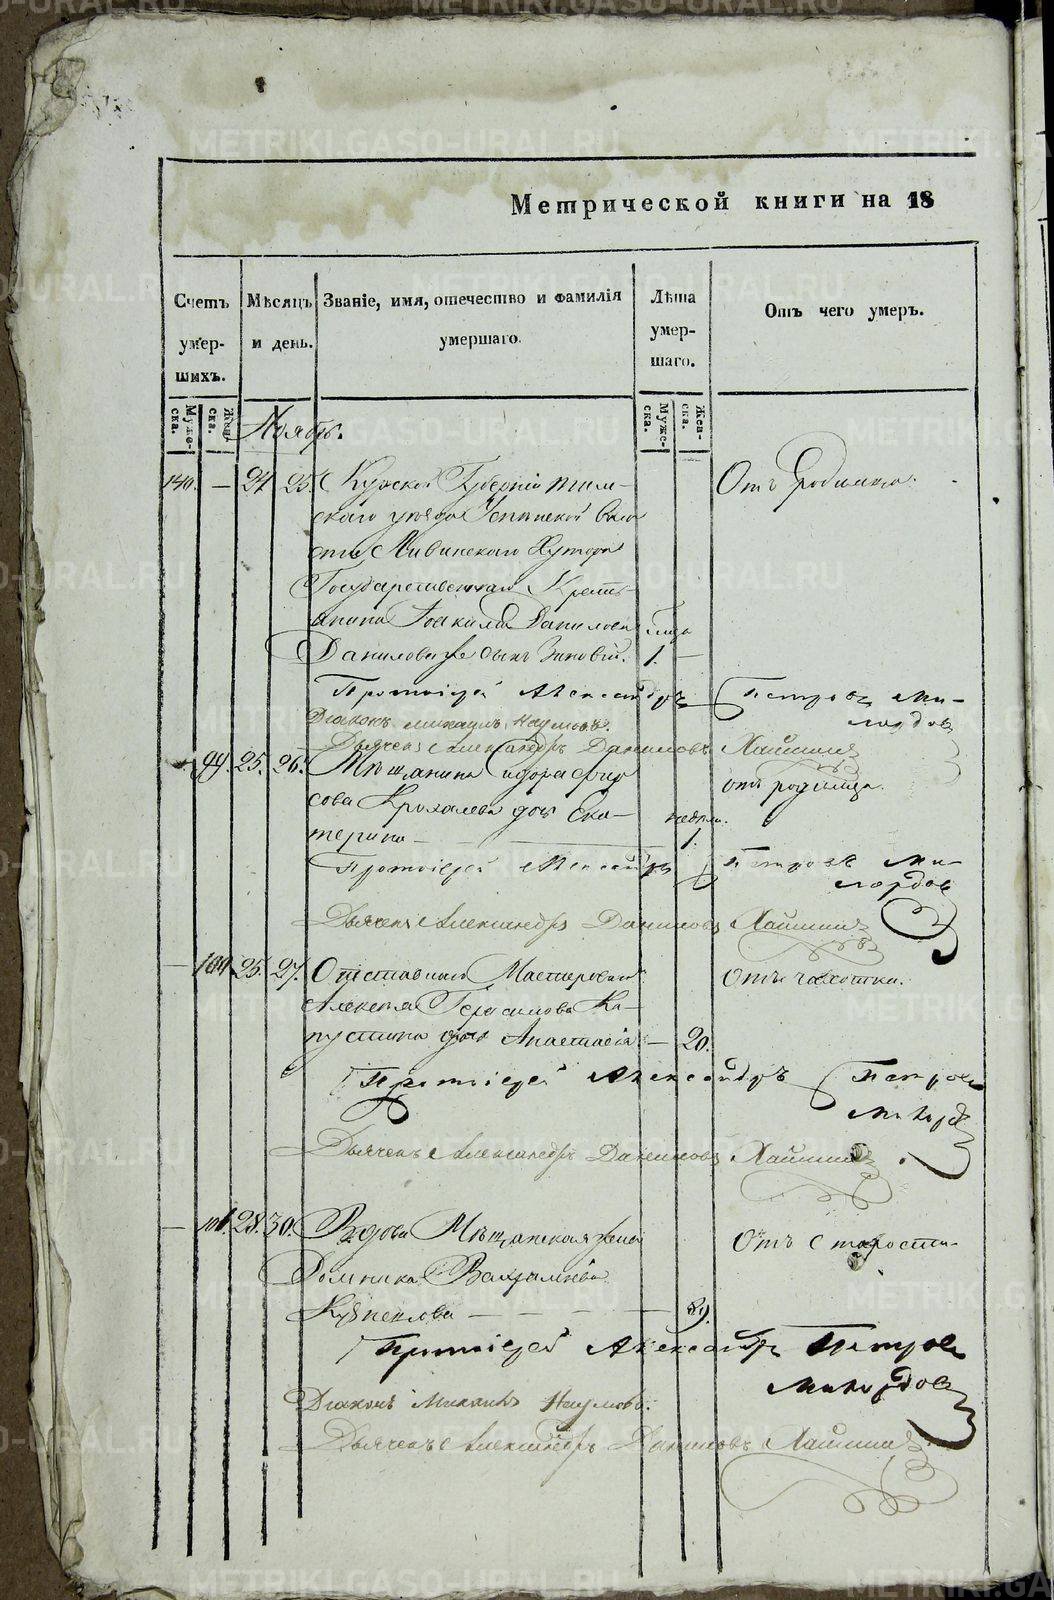 Метрической книги на 18
Счетъ умер- шихъ.
Мѣсяцъ и день.
Званіе, имя, отечество и фамилія умершаго.
Лѣта умер- шаго.
Отъ чего умеръ.
Муже- ска.
Жен- ска.
Муже- ска.
Жен- ска.
Ноябрь.
140. — 24 25. Курской Губерніи Тим- Отъ родимца.
скаго уѣзда воло
сти Ливинскаго Хутора
Государственнаго Кресть-
янина Іоакима Данилова
Данилова же сынъ Зиновій. 1. —
Протоіерей Александръ Петровъ Ми-
лордовъ
Діаконъ Михаилъ Наумовъ.
Дьячекъ Александръ Даниловъ
99. 25. 26. Мѣщанина Сидора Фир
сова Крохалева дочь Ека- отъ родимца.
терина — недѣли. 1.
Протоіерей Александръ Петровъ Ми-
лордовъ
Дьячекъ Александръ Даниловъ
— 100 25. 27. Отставнаго Мастероваго Отъ чахотки.
Алексея Герасимова Ка-
пустина дочь Анастасія — 20.
Протоіерей Александръ Петровъ
Милорд
Дьячекъ Александръ Даниловъ
— 101. 28. 30. Вдова Мѣщанская жена Отъ старости
Домника Вахрамѣева
— 89.
Протоіерей Александръ Петровъ
Милордовъ
Діаконъ Михаилъ Наумовъ.
Дьячекъ Александръ Даниловъ
METRIKI.GASO-URAL.RU